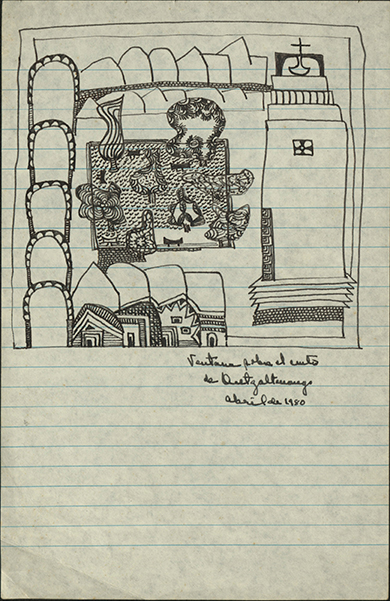 Ventana sobre el
de Quetzaltenango
abril de 1980